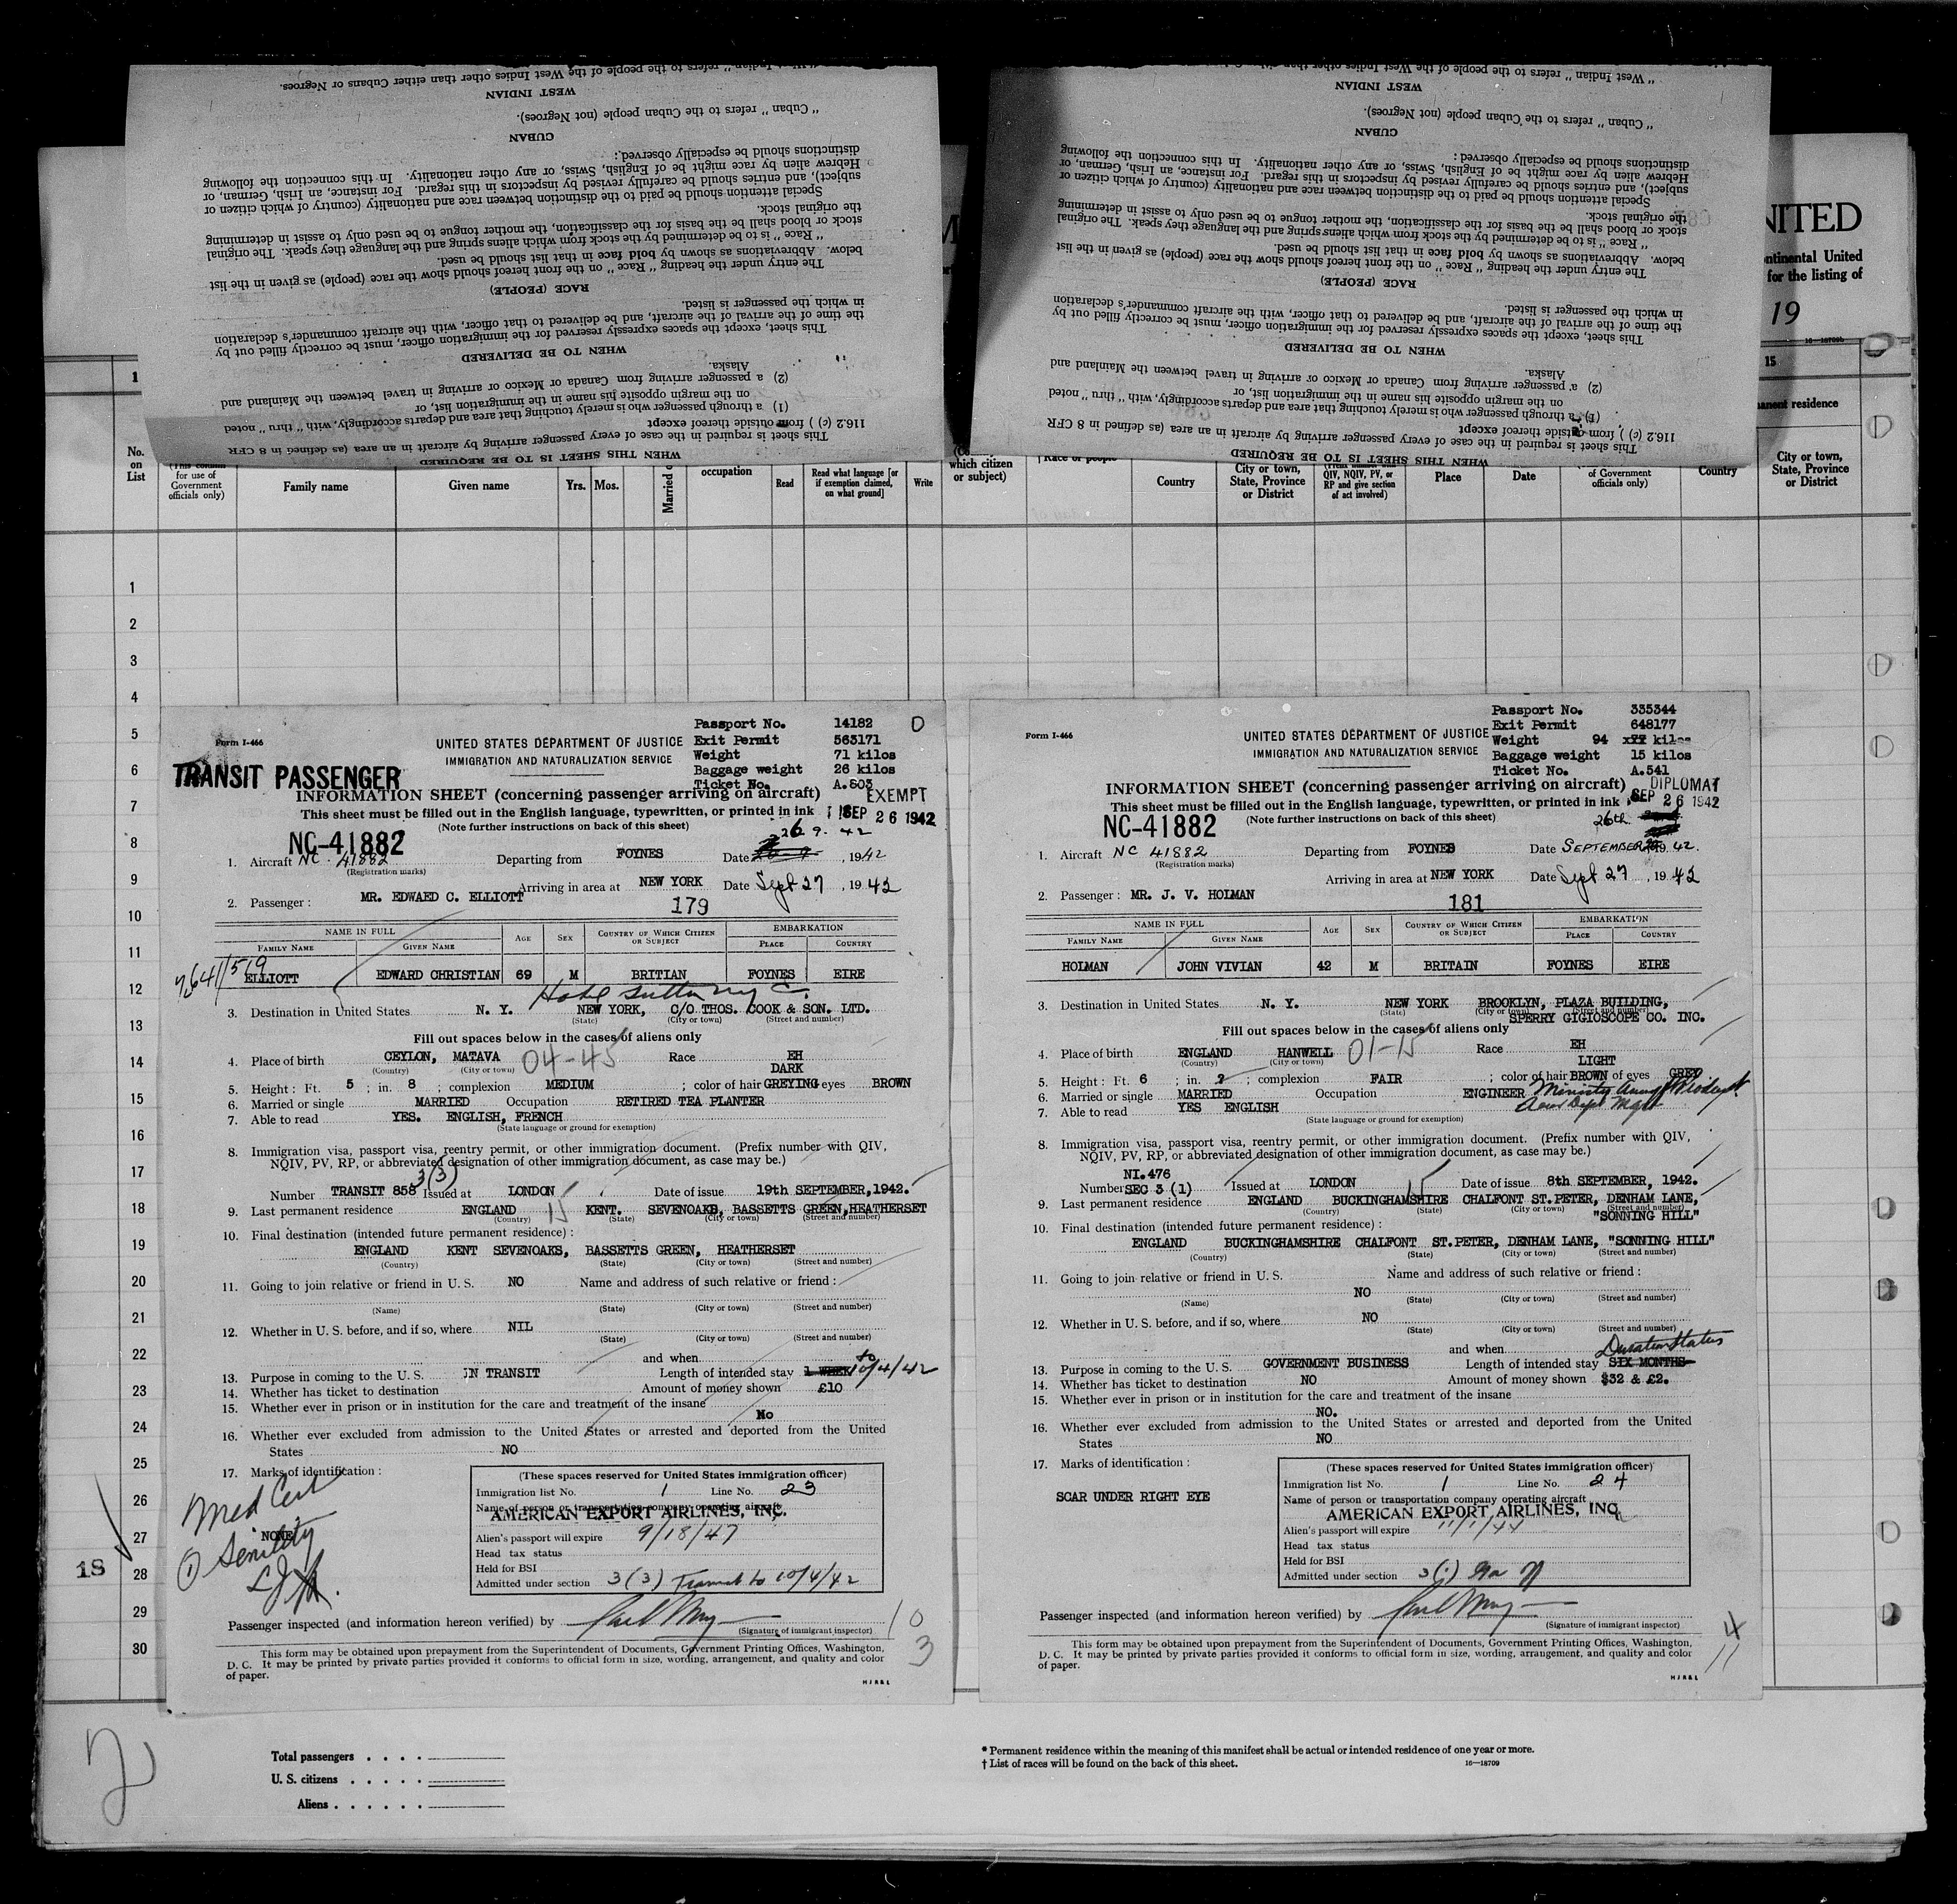 "West Indian" refers to the people of the West Indies other than either Cubans or Negroes.
WEST INDIAN
"Cuban" refers to the Cuban people (not Negroes).
CUBAN
distinctions should be especially observed:
Hebrew alien by race might be of English, Swiss, or any other nationality. In this connection the following
subject), and entries should be carefully revised by inspectors in this regard. For instance, an Irish, German, or
Special attention should be paid to the distinction between race and nationality (country of which citizen or
the original stock.
stock or blood shall be the basis for the classification, the mother tongue to be used only to assist in determining
"Race" is to be determined by the stock from which aliens spring and the language they speak. The original
below. Abbreviations as shown by bold face in that list should be used.
The entry under the heading "Race" on the front hereof should show the race (people) as given in the list
RACE (PEOPLE)
in which the passenger is listed.
the time of the arrival of the aircraft, and be delivered to that officer, with the aircraft commander's declaration
This sheet, except the spaces expressly reserved for the immigration officer, must be correctly filled out by
WHEN TO BE DELIVERED
Alaska.
(2) a passenger arriving from Canada or Mexico or arriving in travel between the Mainland and
on the margin opposite his name in the immigration list, or
(1) a through passenger who is merely touching that area and departs accordingly, with "thru" noted
116.2 (c) ) from outside thereof except
This sheet is required in the case of every passenger arriving by aircraft in an area (as defined in 8 CFR
WHEN THIS SHEET IS TO BE REQUIRED
"West Indian" refers to the people of the West Indies other than
WEST INDIAN
"Cuban" refers to the Cuban people (not Negroes).
CUBAN
distinctions should be especially observed:
Hebrew alien by race might be of English, Swiss, or any other nationality. In this connection the following
subject), and entries should be carefully revised by inspectors in this regard. For instance, an Irish, German, or
Special attention should be paid to the distinction between race and nationality (country of which citizen or
the original stock.
stock or blood shall be the basis for the classification, the mother tongue to be used only to assist in determining
"Race" is to be determined by the stock from which aliens spring and the language they speak. The original
below. Abbreviations as shown by bold face in that list should be used.
The entry under the heading "Race" on the front hereof should show the race (people) as given in the list
RACE (PEOPLE)
in which the passenger is listed.
the time of the arrival of the aircraft, and be delivered to that officer, with the aircraft commander's declaration
This sheet, except the spaces expressly reserved for the immigration officer, must be correctly filled out by
WHEN TO BE DELIVERED
Alaska.
(2) a passenger arriving from Canada or Mexico or arriving in travel between the Mainland and
on the margin opposite his name in the immigration list, or
(1) a through passenger who is merely touching that area and departs accordingly, with "thru" noted
116.2 (c) ) from outside thereof except
This sheet is required in the case of every passenger arriving by aircraft in an area (as defined in 8 CFR
WHEN THIS SHEET IS TO BE REQUIRED
NITED
ontinental United
for the listing of
19
16—18709b
1 15
anent residence
No. on List
(This column for use of Government officials only)
Family name
Given name
Yrs. Mos.
Married o
occupation
Read
Read what language [or if exemption claimed, on what ground]
Write
which citizen or subject)
Race or people
Country
City or town, State, Province or District
QIV, NQIV, PV, or RP and give section of act involved)
Place
Date
of Government officials only)
Country
City or town, State, Province or District
1
2
3
4
5
6
7
8
9
10
11
12
13
14
15
16
17
18
19
20
21
22
23
24
25
26
27
28
29
30
18
Form I-466
UNITED STATES DEPARTMENT OF JUSTICE
IMMIGRATION AND NATURALIZATION SERVICE
Passport No. 14182 D
Exit Permit 563171
Weight 71 kilos
Baggage weight 26 kilos
Ticket No. A.503
TRANSIT PASSENGER
INFORMATION SHEET (concerning passenger arriving on aircraft) EXEMPT
This sheet must be filled out in the English language, typewritten, or printed in ink SEP 26 1942
(Note further instructions on back of this sheet)
NC-41882 26 9. 42
1. Aircraft NC. 41882 Departing from FOYNES Date , 1942
(Registration marks)
Arriving in area at NEW YORK Date Sept 27, 1942
2. Passenger: MR. EDWAED C. ELLIOTT 179
NAME IN FULL AGE SEX COUNTRY OF WHICH CITIZEN OR SUBJECT EMBARKATION
FAMILY NAME GIVEN NAME PLACE COUNTRY
ELLIOTT EDWARD CHRISTIAN 69 M BRITIAN FOYNES EIRE
3. Destination in United States N. Y. NEW YORK, C/O THOS. COOK & SON. LTD.
(State) (City or town) (Street and number)
Fill out spaces below in the cases of aliens only
4. Place of birth CEYLON, MATAVA 04-45 Race EH
(Country) (City or town) DARK
5. Height: Ft. 5; in. 8; complexion MEDIUM; color of hair GREYING eyes BROWN
6. Married or single MARRIED Occupation RETIRED TEA PLANTER
7. Able to read YES. ENGLISH, FRENCH
(State language or ground for exemption)
8. Immigration visa, passport visa, reentry permit, or other immigration document. (Prefix number with QIV,
NQIV, PV, RP, or abbreviated designation of other immigration document, as case may be.)
3(3)
Number TRANSIT 858 Issued at LONDON Date of issue 19th SEPTEMBER,1942.
9. Last permanent residence ENGLAND 15 KENT. SEVENOAKS, BASSETTS GREEN,HEATHERSET
(Country) (State) (City or town) (Street and number)
10. Final destination (intended future permanent residence):
ENGLAND KENT SEVENOAKS, BASSETTS GREEN, HEATHERSET
(Country) (State) (City or town) (Street and number)
11. Going to join relative or friend in U. S. NO Name and address of such relative or friend:
(Name) (State) (City or town) (Street and number)
12. Whether in U. S. before, and if so, where NIL
(State) (City or town) (Street and number)
and when to
13. Purpose in coming to the U. S. IN TRANSIT Length of intended stay 1 WEEK 10/4/42
14. Whether has ticket to destination Amount of money shown £10
15. Whether ever in prison or in institution for the care and treatment of the insane
No
16. Whether ever excluded from admission to the United States or arrested and deported from the United
States NO
17. Marks of identification:
Med Cert
NONE
① Senility
(These spaces reserved for United States immigration officer)
Immigration list No. 1 Line No. 23
Name of person or transportation company operating aircraft
AMERICAN EXPORT AIRLINES, INC.
Alien's passport will expire 9/18/47
Head tax status
Held for BSI
Admitted under section 3(3) Transit to 10/4/42
Passenger inspected (and information hereon verified) by
(Signature of immigrant inspector)
10
3
This form may be obtained upon prepayment from the Superintendent of Documents, Government Printing Offices, Washington,
D. C. It may be printed by private parties provided it conforms to official form in size, wording, arrangement, and quality and color
of paper.
H J R & L
Form I-466
UNITED STATES DEPARTMENT OF JUSTICE
IMMIGRATION AND NATURALIZATION SERVICE
Passport No. 335344
Exit Permit 648177
Weight 94 kilos
Baggage weight 15 kilos
Ticket No. A.541
INFORMATION SHEET (concerning passenger arriving on aircraft) DIPLOMAT
This sheet must be filled out in the English language, typewritten, or printed in ink SEP 26 1942
(Note further instructions on back of this sheet) 26th
NC-41882
1. Aircraft NC 41882 Departing from FOYNES Date SEPTEMBER 1942.
(Registration marks)
Arriving in area at NEW YORK Date Sept 27, 1942
2. Passenger: MR. J. V. HOLMAN 181
NAME IN FULL AGE SEX COUNTRY OF WHICH CITIZEN OR SUBJECT EMBARKATION
FAMILY NAME GIVEN NAME PLACE COUNTRY
HOLMAN JOHN VIVIAN 42 M BRITAIN FOYNES EIRE
3. Destination in United States N. Y. NEW YORK BROOKLYN, PLAZA BUILDING,
(State) (City or town) (Street and number)
SPERRY GIGIOSCOPE CO. INC.
Fill out spaces below in the cases of aliens only
4. Place of birth ENGLAND HANWELL 01-15 Race EH
(Country) (City or town) LIGHT
5. Height: Ft. 6; in. 2; complexion FAIR; color of hair BROWN of eyes GREY
6. Married or single MARRIED Occupation ENGINEER
7. Able to read YES ENGLISH
(State language or ground for exemption)
8. Immigration visa, passport visa, reentry permit, or other immigration document. (Prefix number with QIV,
NQIV, PV, RP, or abbreviated designation of other immigration document, as case may be.)
NI.476
Number SEC 3 (1) Issued at LONDON Date of issue 8th SEPTEMBER, 1942.
9. Last permanent residence ENGLAND BUCKINGHAMSHIRE CHALFONT ST.PETER, DENHAM LANE,
(Country) (State) (City or town) (Street and number)
"SONNING HILL"
10. Final destination (intended future permanent residence):
ENGLAND BUCKINGHAMSHIRE CHALFONT ST.PETER, DENHAM LANE, "SONNING HILL"
(Country) (State) (City or town) (Street and number)
11. Going to join relative or friend in U. S. Name and address of such relative or friend:
NO
(Name) (State) (City or town) (Street and number)
12. Whether in U. S. before, and if so, where NO
(State) (City or town) (Street and number)
and when Duration Status
13. Purpose in coming to the U. S. GOVERNMENT BUSINESS Length of intended stay SIX MONTHS
14. Whether has ticket to destination NO Amount of money shown $32 & £2.
15. Whether ever in prison or in institution for the care and treatment of the insane
NO.
16. Whether ever excluded from admission to the United States or arrested and deported from the United
States NO
17. Marks of identification:
SCAR UNDER RIGHT EYE
(These spaces reserved for United States immigration officer)
Immigration list No. 1 Line No. 24
Name of person or transportation company operating aircraft
AMERICAN EXPORT AIRLINES, INC.
Alien's passport will expire 11/1/44
Head tax status
Held for BSI
Admitted under section 3(1)
Passenger inspected (and information hereon verified) by
(Signature of immigrant inspector)
4
11
This form may be obtained upon prepayment from the Superintendent of Documents, Government Printing Offices, Washington,
D. C. It may be printed by private parties provided it conforms to official form in size, wording, arrangement, and quality and color
of paper.
H J R & L
Total passengers . . . .
U. S. citizens . . . . .
Aliens . . . . . .
* Permanent residence within the meaning of this manifest shall be actual or intended residence of one year or more.
† List of races will be found on the back of this sheet. 16—18709